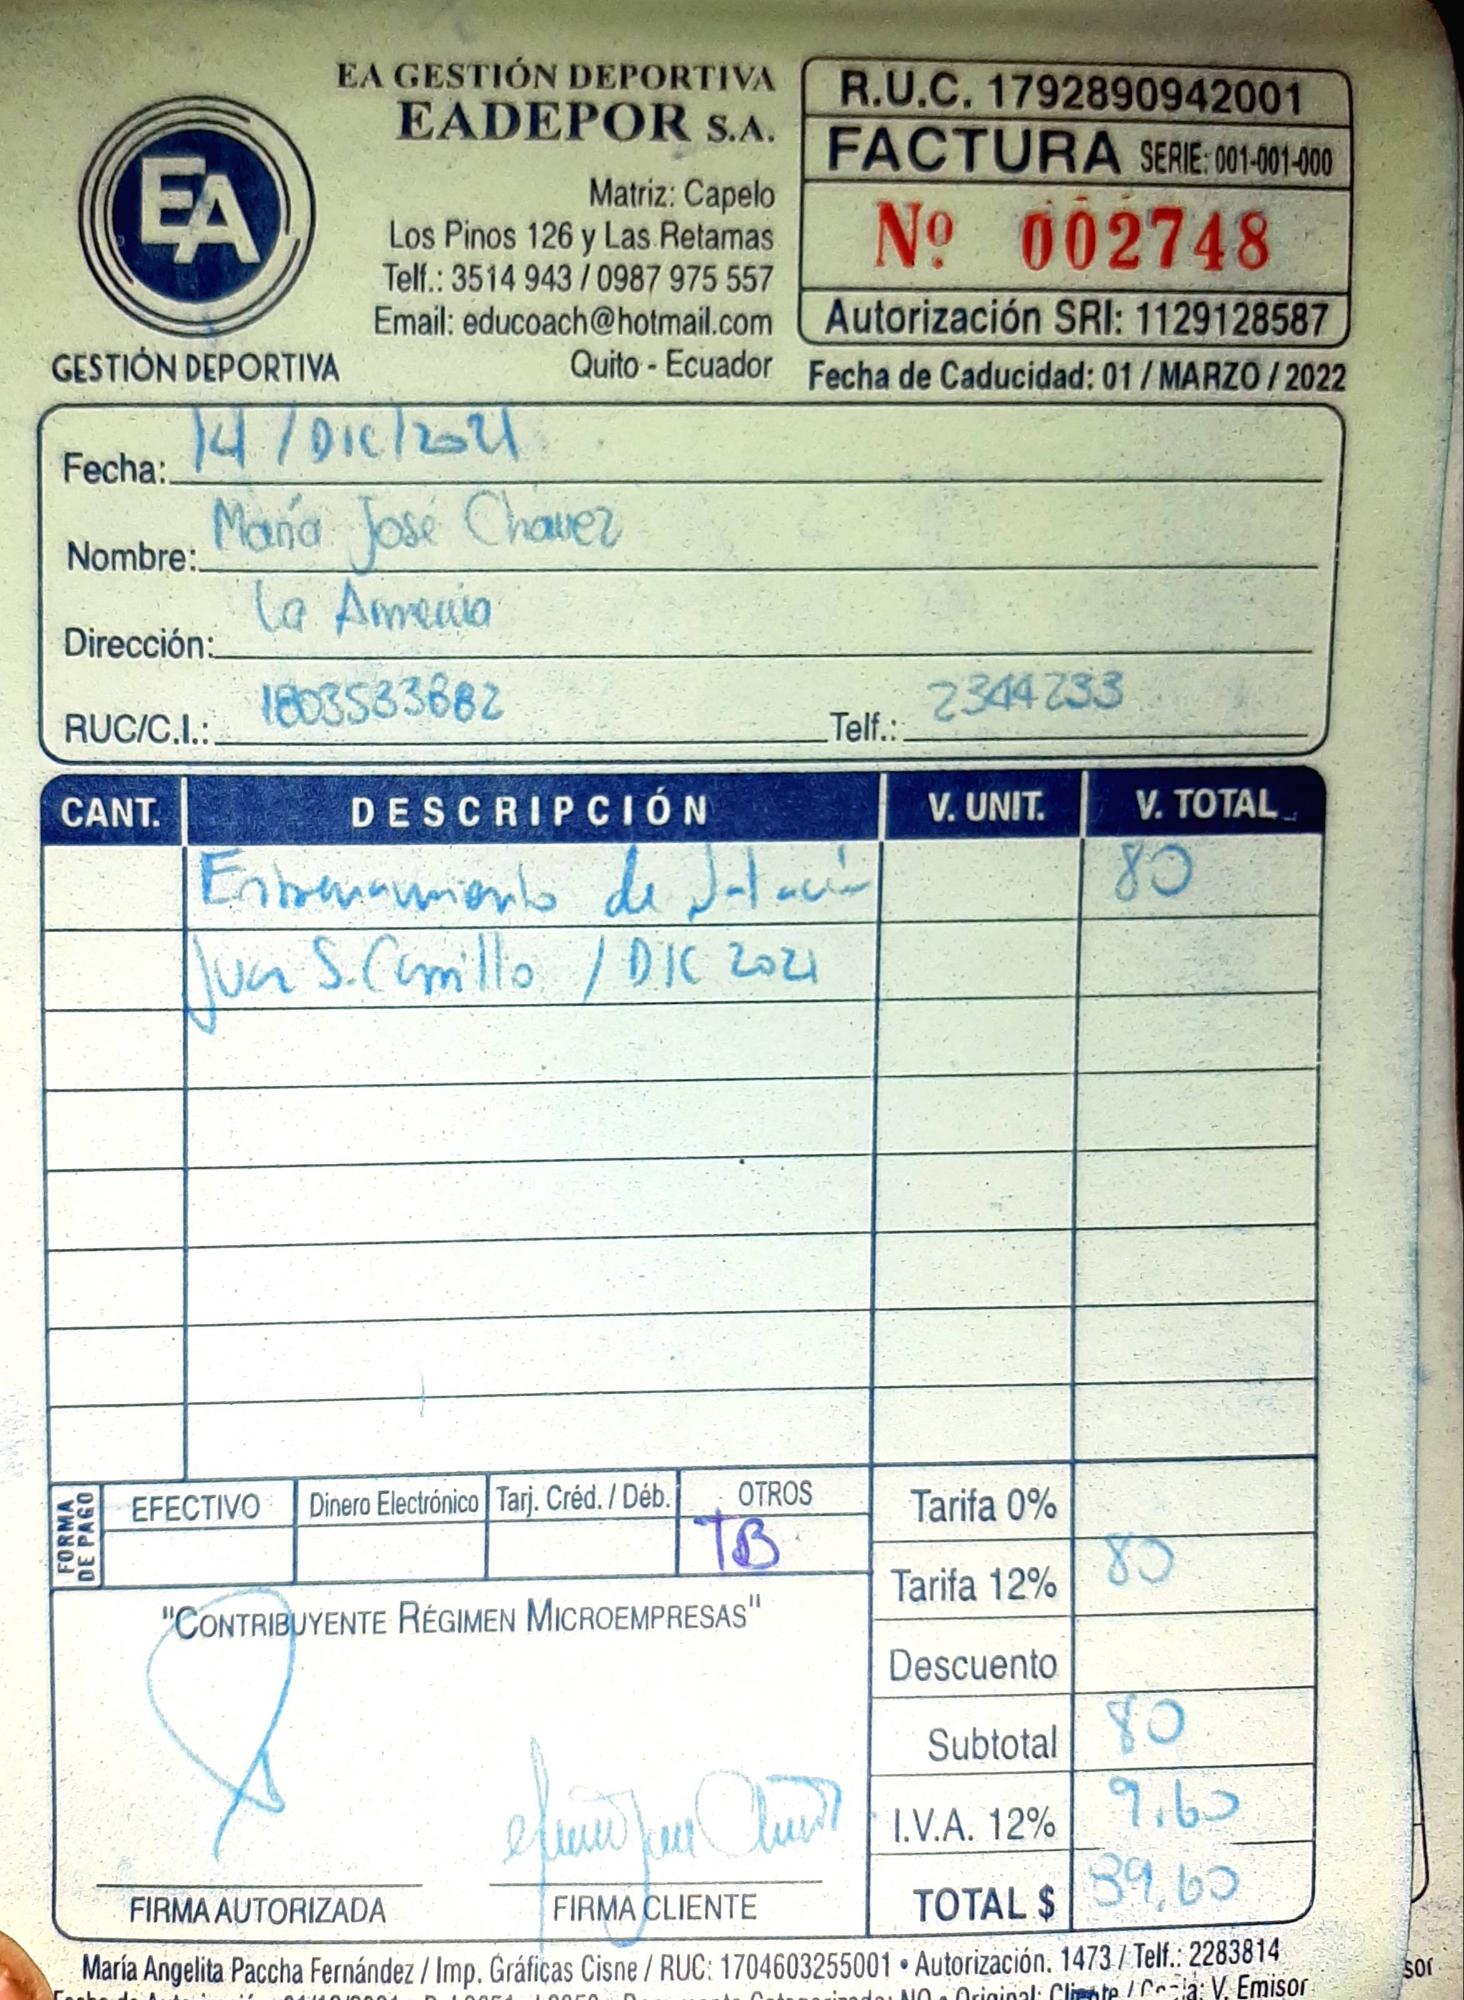 EA GESTIÓN DEPORTIVA
EADEPOR S.A.
EA
GESTIÓN DEPORTIVA
Matriz: Capelo
Los Pinos 126 y Las Retamas
Telf.: 3514 943 / 0987 975 557
Email: educoach@hotmail.com
Quito - Ecuador
R.U.C. 1792890942001
FACTURA SERIE: 001-001-000
Nº 002748
Autorización SRI: 1129128587
Fecha de Caducidad: 01 / MARZO / 2022
Fecha: 14 / DIC / 2021
Nombre: María José Chavez
Dirección: La Armenia
RUC/C.I.: 1803533682 Telf.: 2344233
CANT. DESCRIPCIÓN V. UNIT. V. TOTAL
Entrenamiento de Natación 80
Juan S. Carrillo / DIC 2021
FORMA DE PAGO
EFECTIVO Dinero Electrónico Tarj. Créd. / Déb. OTROS
TB
Tarifa 0%
Tarifa 12% 80
Descuento
Subtotal 80
I.V.A. 12% 9.60
TOTAL $ 89.60
"CONTRIBUYENTE RÉGIMEN MICROEMPRESAS"
FIRMA AUTORIZADA FIRMA CLIENTE
María Angelita Paccha Fernández / Imp. Gráficas Cisne / RUC: 1704603255001 • Autorización. 1473 / Telf.: 2283814
NO • Original: Cliente / Copia: V. Emisor
sor